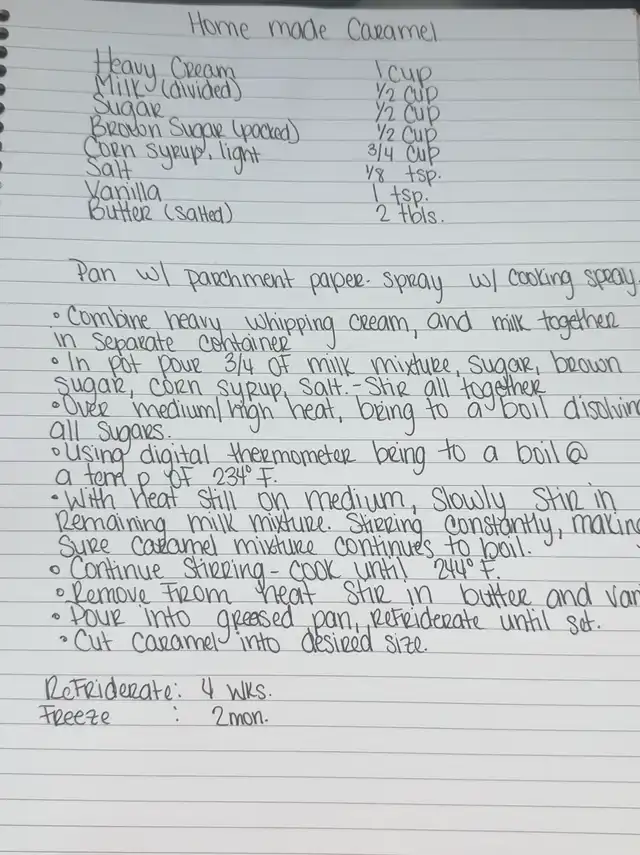 Home made Caramel
Heavy Cream 1 cup
Milk (divided) 1/2 cup
Sugar 1/2 cup
Brown Sugar (packed) 1/2 cup
Corn syrup, light 3/4 cup
Salt 1/8 tsp.
Vanilla 1 tsp.
Butter (salted) 2 tbls.
Pan w/ parchment paper. spray w/ cooking spray.
• Combine heavy whipping cream, and milk together
in separate container
• In pot pour 3/4 of milk mixture, sugar, brown
sugar, corn syrup, salt. - Stir all together
• Over medium/high heat, being to a boil disolving
all sugars.
• Using digital thermometer being to a boil @
a temp of 234° F.
• With heat still on medium, slowly stir in
remaining milk mixture. Stirring constantly, making
sure caramel mixture continues to boil.
• Continue stirring - cook until 244° F.
• Remove from heat stir in butter and van
• Pour into greased pan, refriderate until set.
• Cut caramel into desired size.
Refriderate: 4 wks.
Freeze : 2mon.